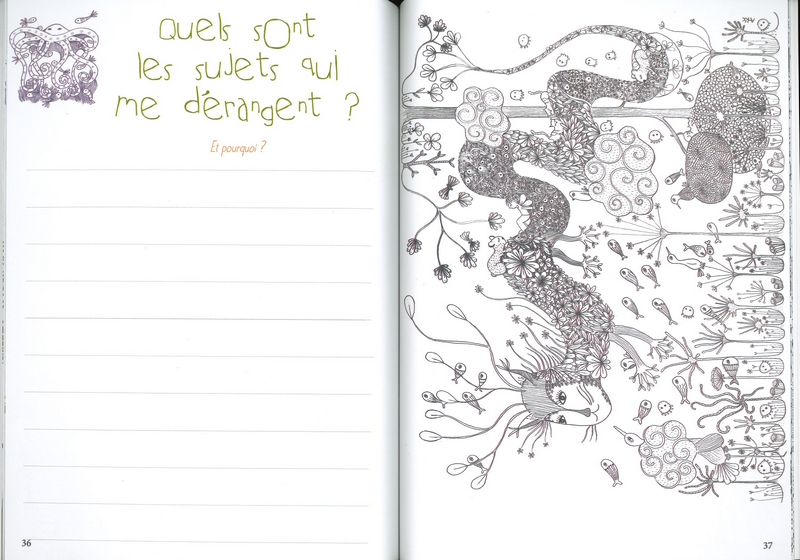 Quels sont
les sujets qui
me dérangent ?
Et pourquoi ?
36
37